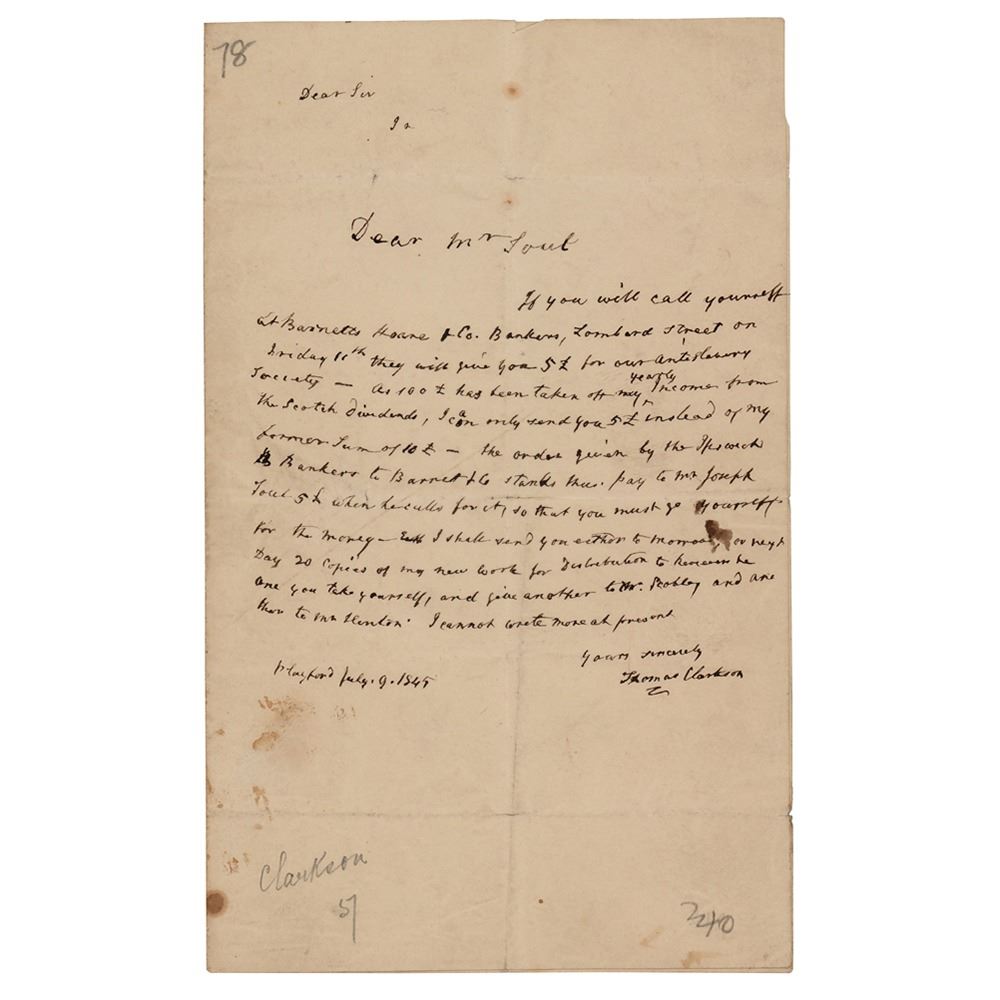 78
Dear Sir
I
Dear Mr Soul
If you will call yourself
at Barnetts Hoare & Co. Bankers, Lombard Street on
Friday 11th they will give you 5£ for our Antislavery
Society — As 100£ has been taken off my yearly Income from
the Scotch dividends, I can only send you 5£ instead of my
former Sum of 10£ — the order given by the Ipswich
Bankers to Barnet & Co stands thus. pay to Mr Joseph
Soul 5£ when he calls for it, so that you must go yourself
for the money — I shall send you either to morrow or next
Day 20 Copies of my new work for Distribution to
one you take yourself, and give another to Mr. Scobley and ano
ther to Mr Hinton. I cannot write more at present
Yours sincerely
Thomas Clarkson
Playford July. 9. 1845
Clarkson
51
240